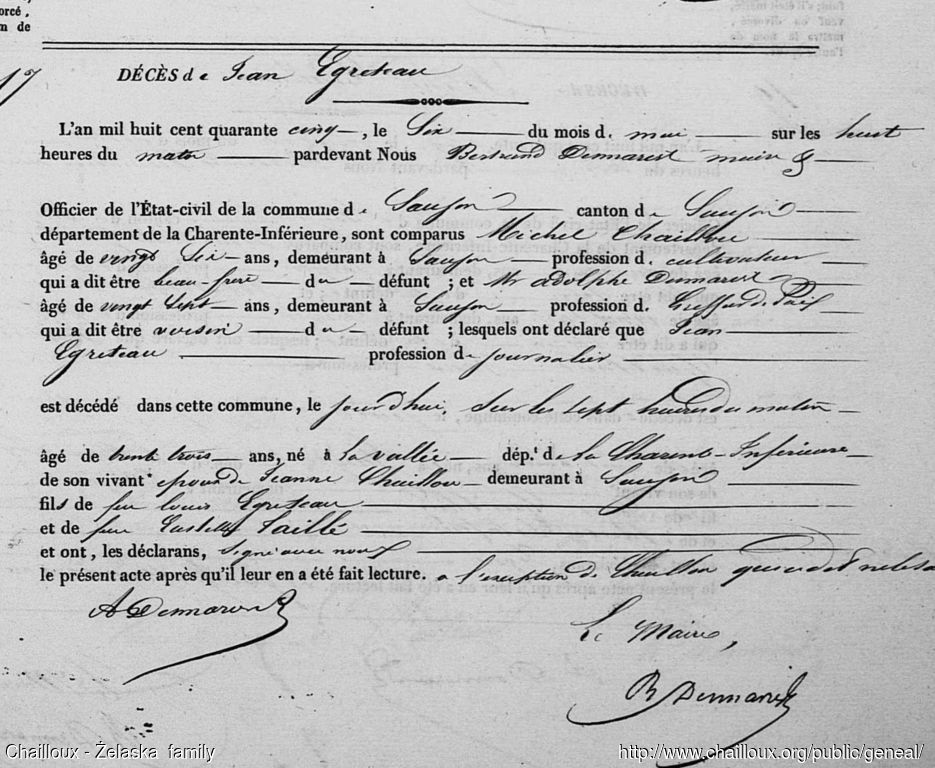 orcé,
n de
17
DÉCÈS de Jean Egreteau
L'an mil huit cent quarante cinq, le Six du mois d. mai sur les huit
heures du matin pardevant Nous Bertrand Demarest maire &
Officier de l'État-civil de la commune de Saujon canton de Saujon
département de la Charente-Inférieure, sont comparus Michel Chaillou
âgé de vingt Six ans, demeurant à Saujon profession de cultivateur
qui a dit être beau-frère du défunt ; et Mr adolphe Demarest
âgé de vingt Sept ans, demeurant à Saujon profession d.
qui a dit être voisin du défunt ; lesquels ont déclaré que Jean
Egreteau profession de journalier
est décédé dans cette commune, le jourd'hui, sur les sept heures du matin
âgé de trente trois ans, né à la vallée dép.t de la Charente-Inférieure
de son vivant époux de Jeanne Chaillou demeurant à Saujon
fils de feu louis Egreteau
et de feue Taillé
et ont, les déclarans, signé avec nous
le présent acte après qu'il leur en a été fait lecture. a l'exception de Chaillou qui a dit ne le
A Demarest
Le Maire,
B Demarest
Chailloux - Želaska family
http://www.chailloux.org/public/geneal/